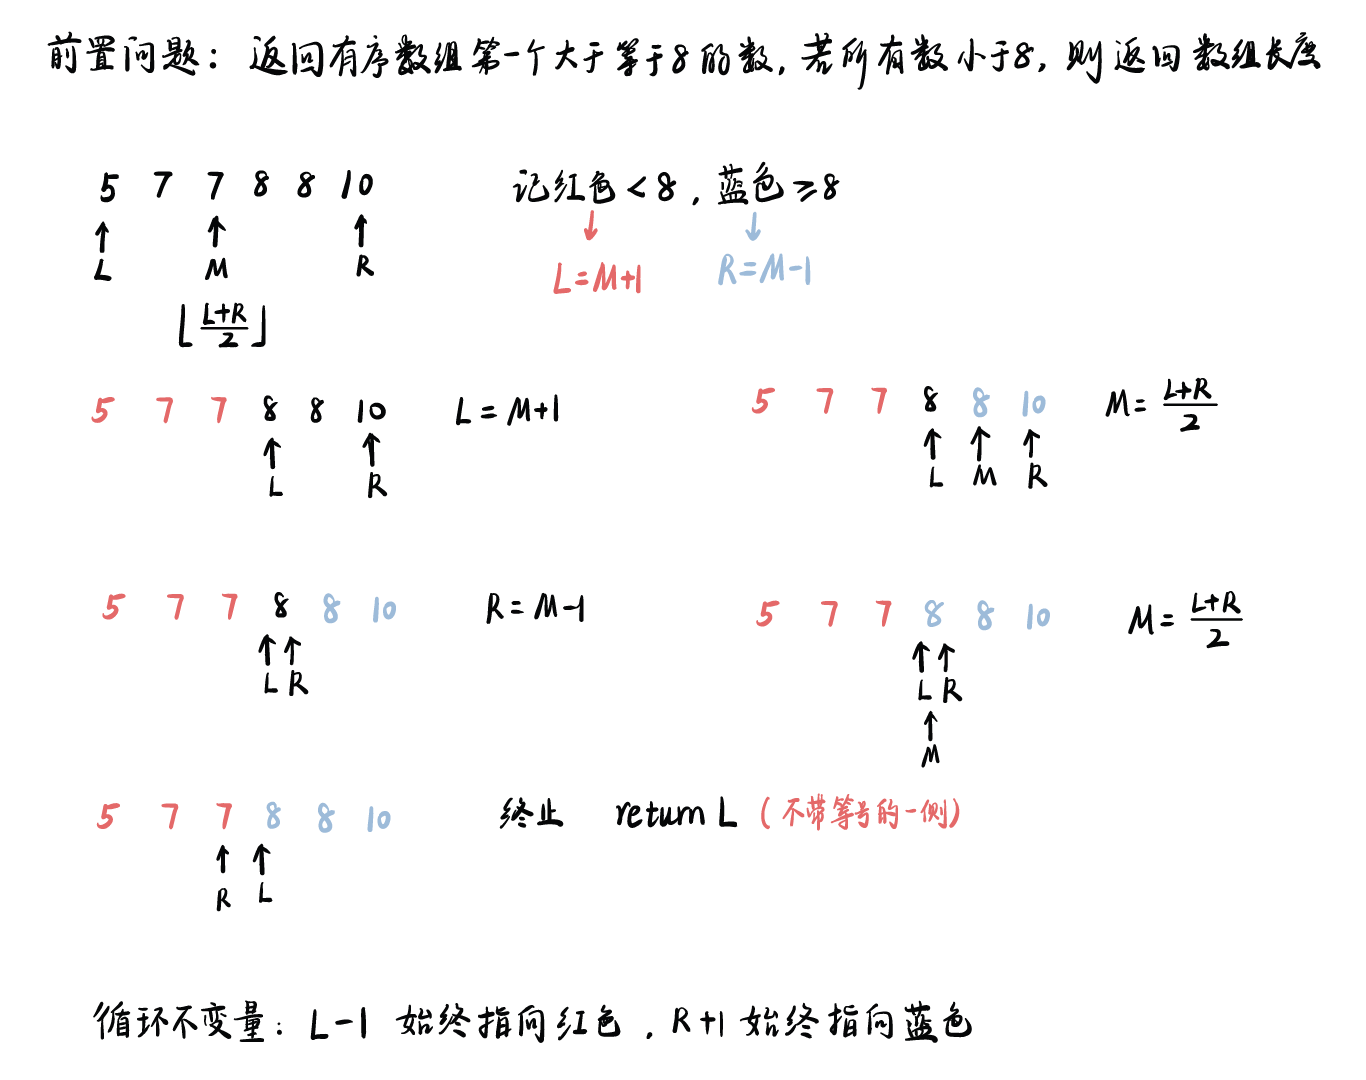 前置问题：返回有序数组第一个大于等于8的数，若所有数小于8，则返回数组长度
5 7 7 8 8 10
记红色<8，蓝色≥8
L M R
L=M+1 R=M-1
⌊(L+R)/2⌋
5 7 7 8 8 10 L=M+1
L R
5 7 7 8 8 10 M=(L+R)/2
L M R
5 7 7 8 8 10 R=M-1
L R
5 7 7 8 8 10 M=(L+R)/2
L R
M
5 7 7 8 8 10 终止 return L (不带等号的一侧)
R L
循环不变量：L-1 始终指向红色，R+1 始终指向蓝色